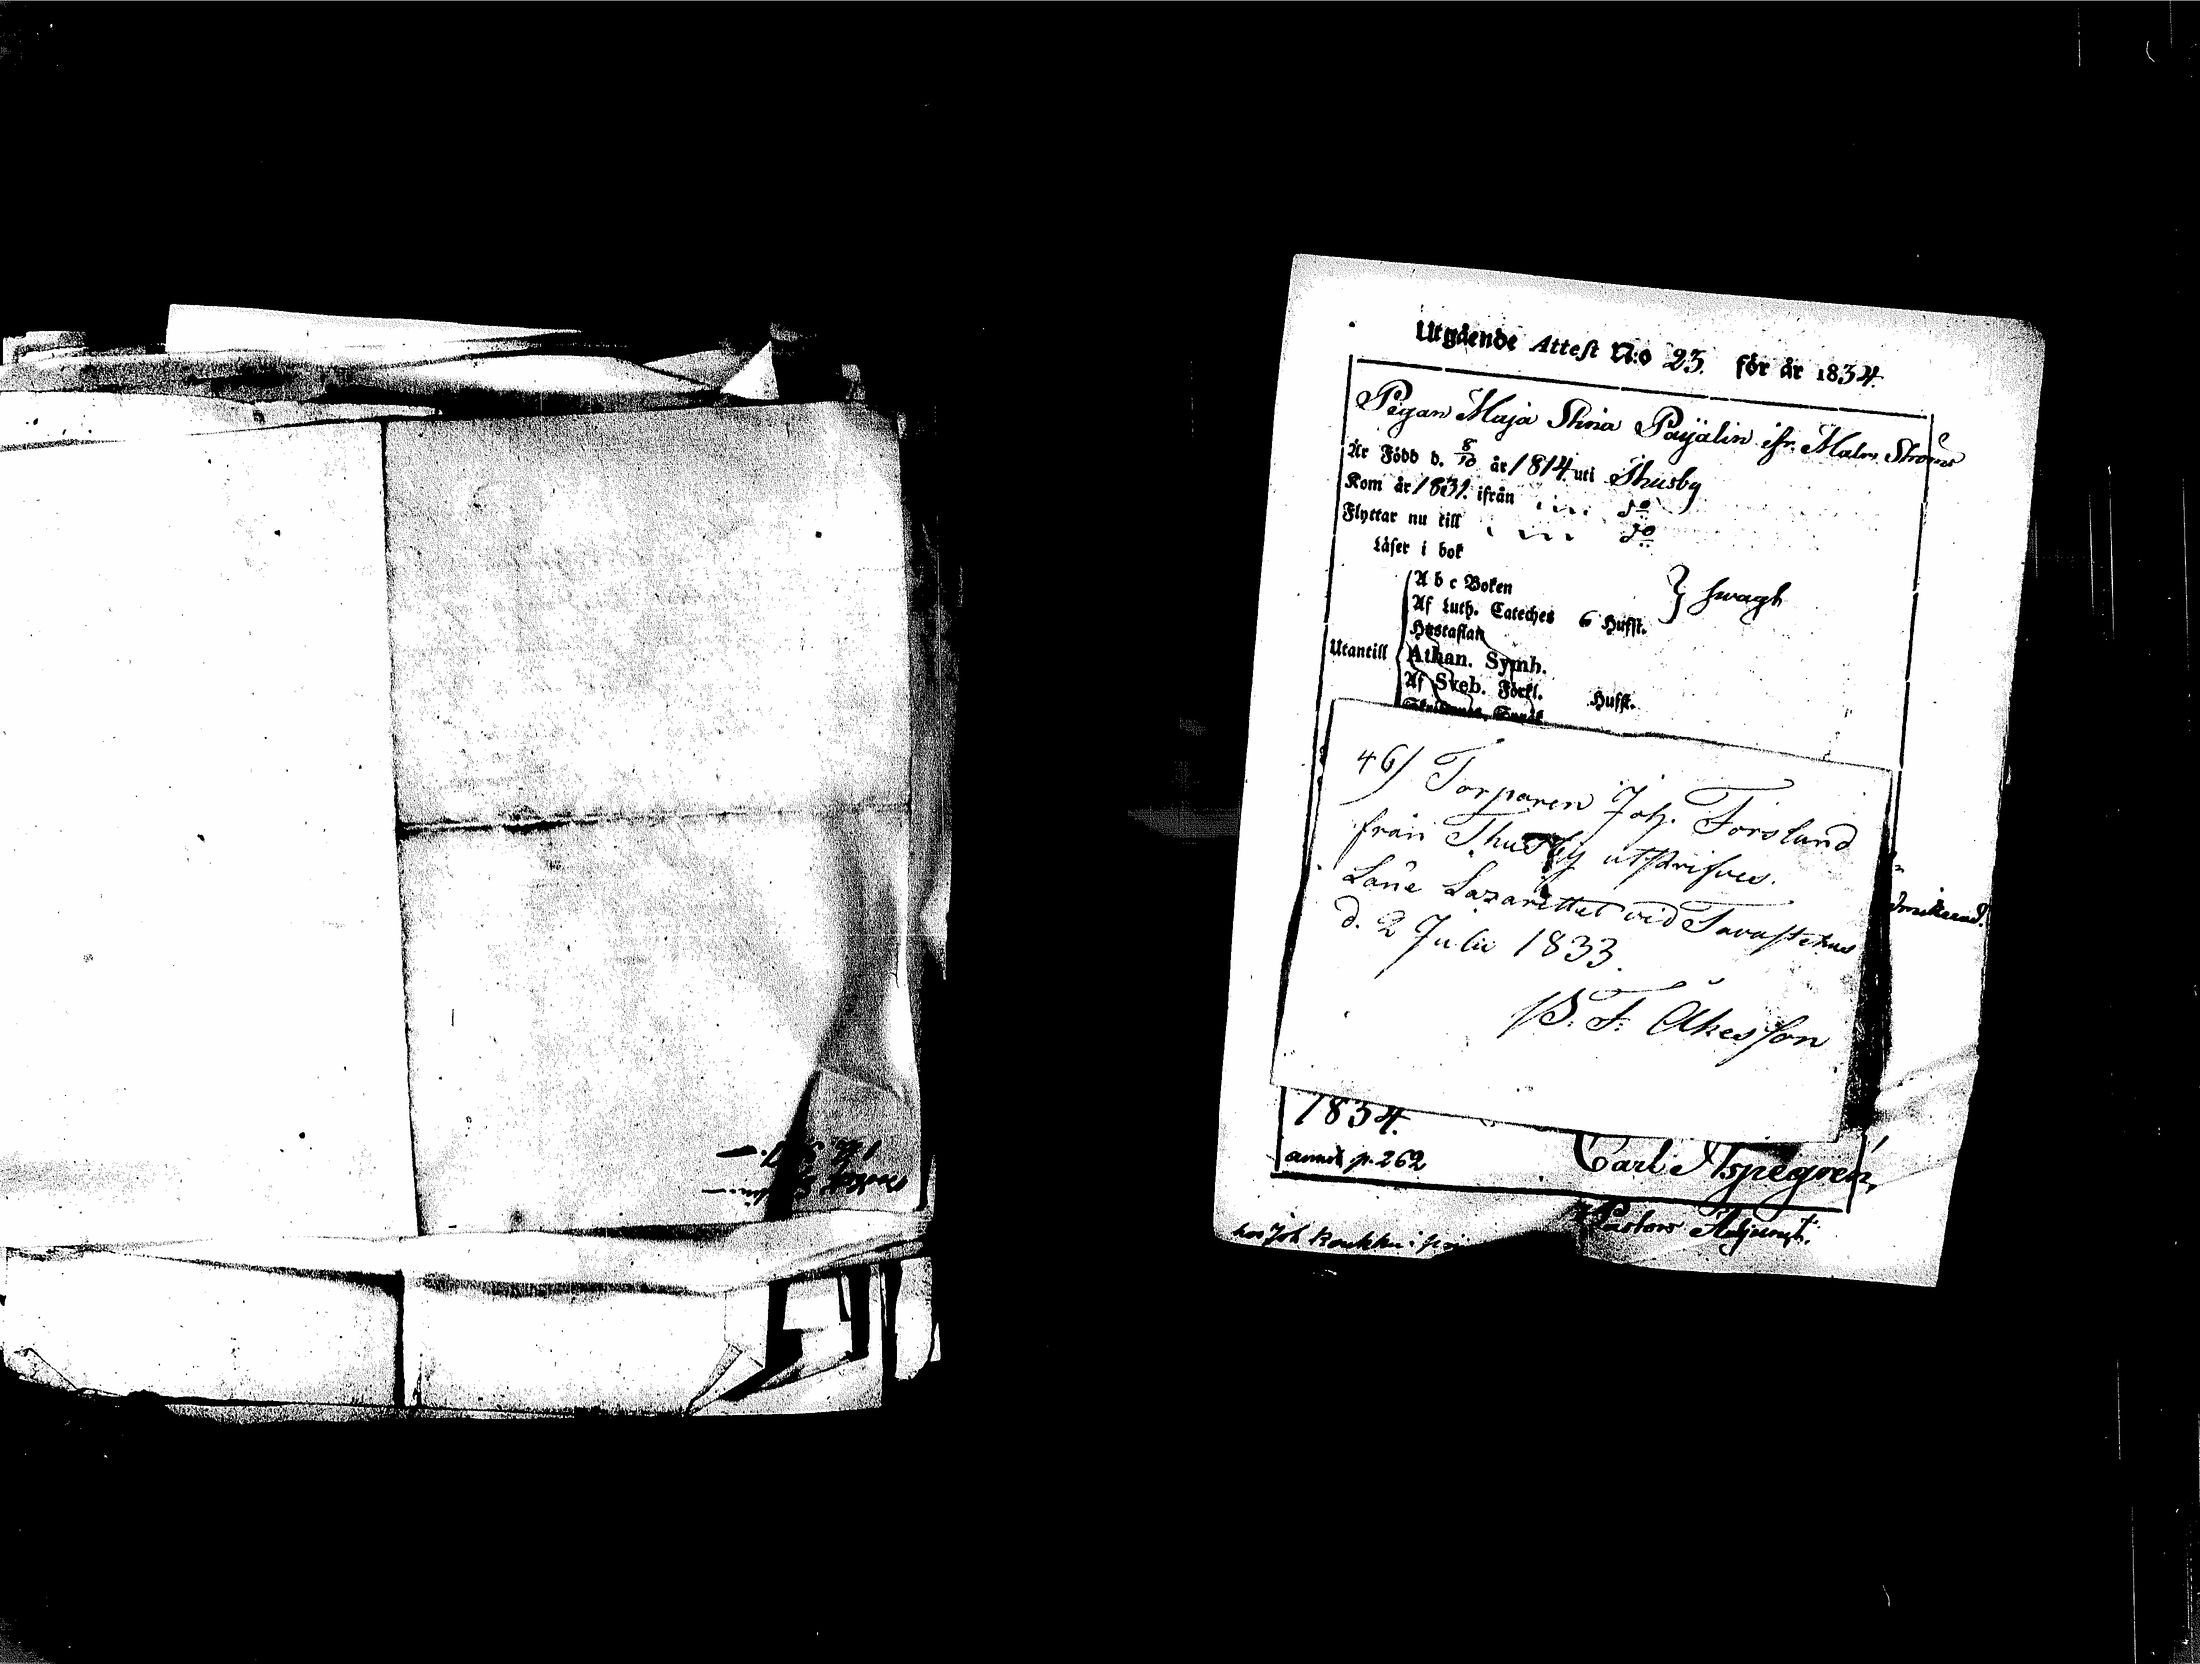 Utgående Attest N:o 23. för år 1834.
Pigan Maja Stina Payalin ifr. Malm Ströms
Är Född d. 8/10 år 1814 uti Thusby
Kom år 1831. ifrån d:o
Flyttar nu till d:o
Läser i bok
A b c Boken } swagh
Af Luth. Cateches 6 Hufst.
Hustaflan
Utantill
Athan. Symb.
Af Sveb. Förkl. Hufst.
46) Torparen Joh. Forslund
från Thusby utskrifves.
Läne Lazarettet vid Tavastehus
d. 2 Julii 1833.
B. F. Åkesson
1834.
p. 262
Carl Aspegren,
Pastors Adjunct.
hos Joh